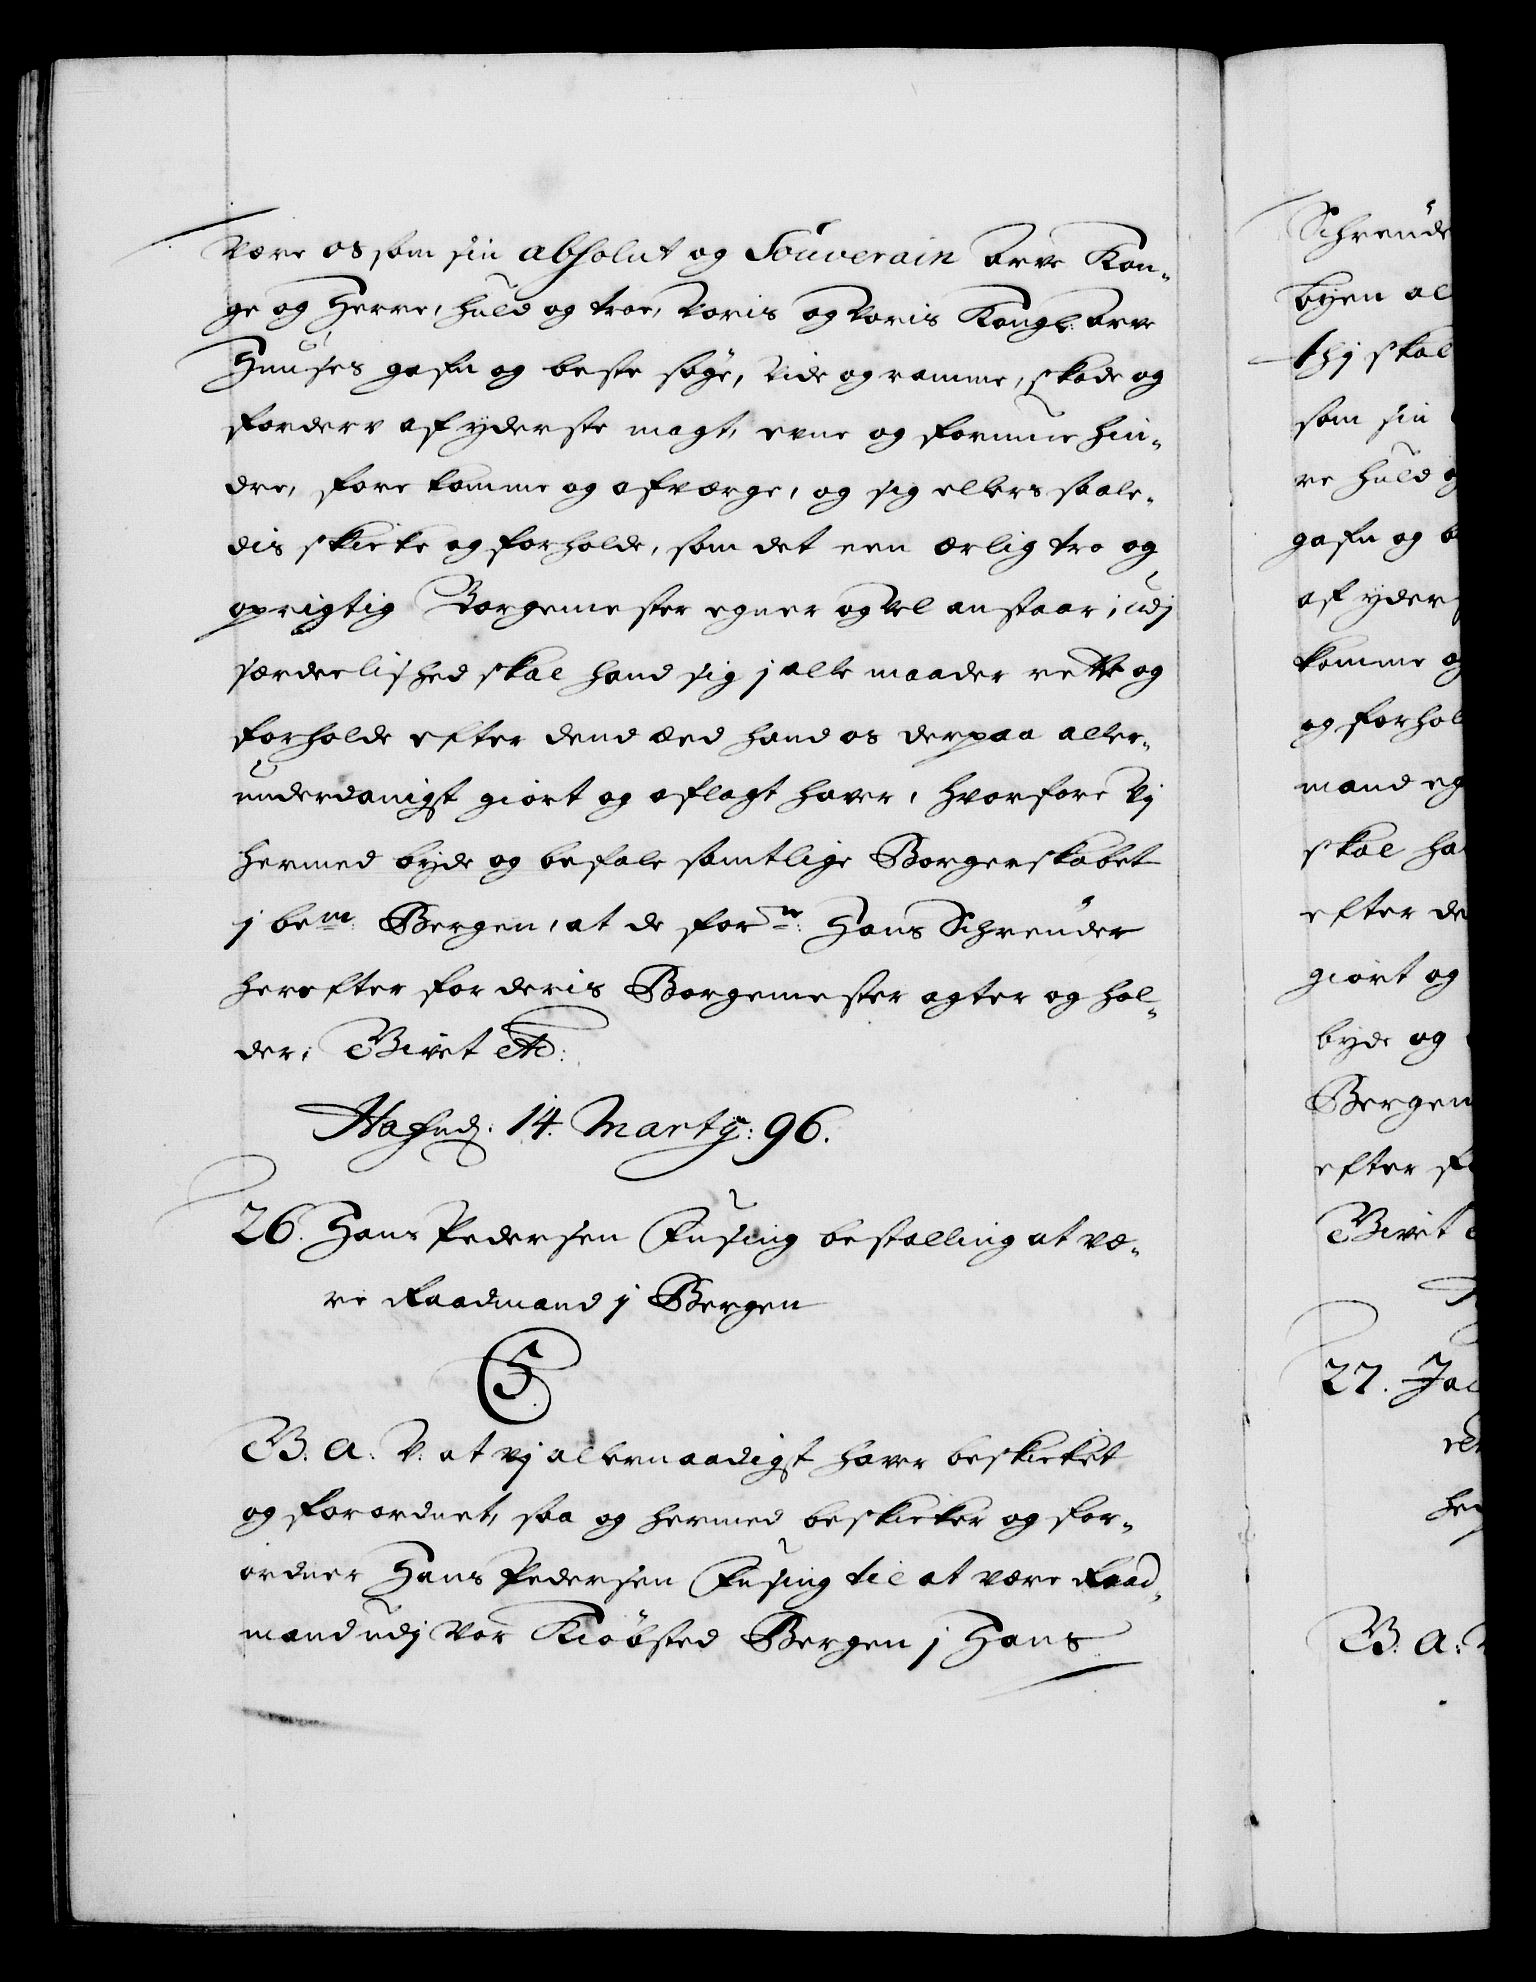 være os som sin absolut og Souverain Arve Kon-
ge og Herre, huld og troe, Voris og Voris Kongl: Arve
Huuses gafn og beste søge, vide og ramme, skade og
forderv af yderste magt, evne og formue hin-
dre, fore komme og afværge, og sig ellers saale-
dis skicke og forholde, som det een ærlig tro og
oprigtig Borgemester egner og vel anstaar, udj
særdeelished skal hand sig j alle maader rette og
forholde efter dend æed hand os derpaa aller-
underdanigst giort og aflagt haver, hvorfore Vj
hermed byde og befale samtlige Borgerskabet
j bem: Bergen, at de forn: Hans Schreuder
herefter for deris Borgemester agter og hol-
der, Givet etc:
Hafnd: 14. Martij: 96.
26. Hans Pedersen Fusing bestalling at væ-
re Raadmand j Bergen
C5
G. A: V: at vj allernaadigst haver beskicket
og forordnet, saa og hermed beskicker og for-
ordner Hans Pedersen Fusing til at være Raad-
mand udj Vor Kiøbsted Bergen j Hans
Schreude
byen al
thj skal
som sin
re huld og
gafn og be
af yders
komme og
og forhol
mand eg
skal ha
efter de
giort og
byde og
Bergen
efter fo
Givet
27. Jac
G. A: